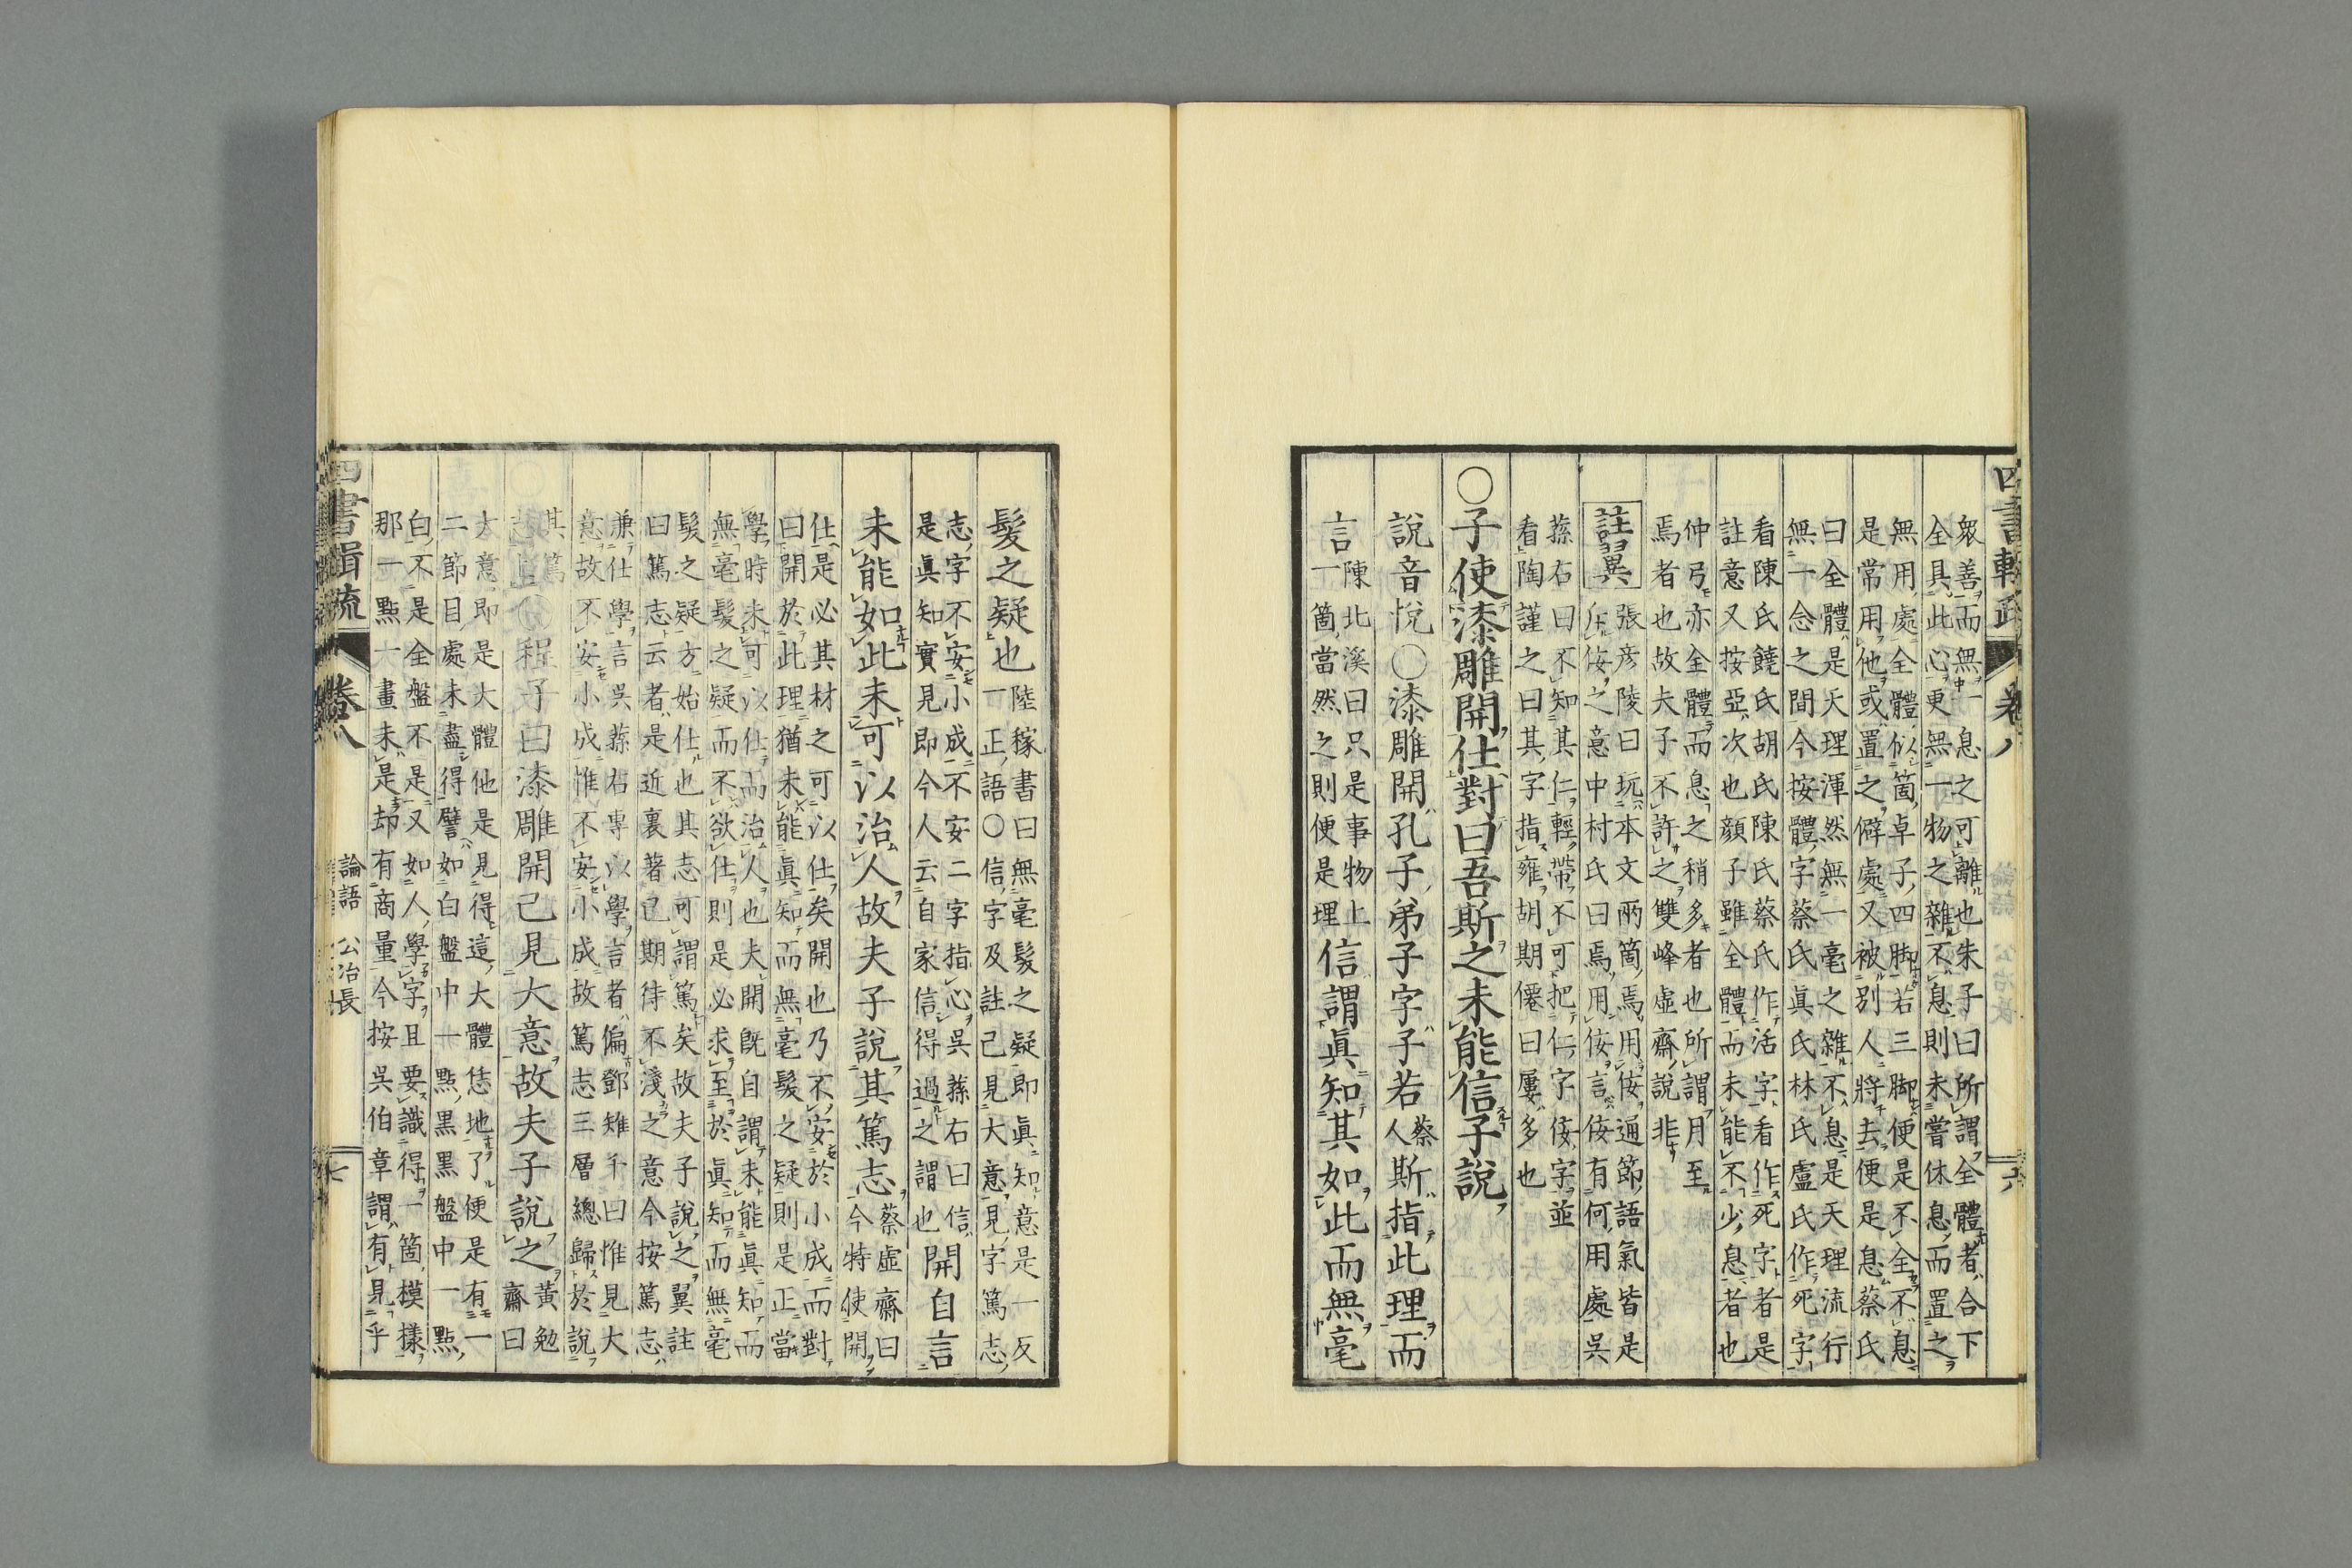 衆善而無一息之可離也朱子曰所謂全體者合下
全具此心更無一物之雜不息則未嘗休息而置之
無用處全體似箇卓子四脚若三脚便是不全不息
是常用他或置之僻處又被別人將去便是息蔡氏
曰全體是天理渾然無一毫之雜不息是天理流行
無一念之間今按體字蔡氏眞氏林氏盧氏作死字
看陳氏饒氏胡氏陳氏蔡氏作活字看作死字者是
註意又按亞次也顔子雖全體而未能不少息者也
仲弓亦全體而息之稍多者也所謂月至
焉者也故夫子不許之雙峰虛齋說非
註翼
張彦陵曰玩本文兩箇焉用佞通節語氣皆是
斥佞之意中村氏曰焉用佞言佞有何用處吳
蓀右曰不知其仁輕帶不可把仁字佞字並
看陶謹之曰其字指雍胡期僊曰屢多也
○子使漆雕開仕對曰吾斯之未能信子說
說音悅○漆雕開孔子弟子字子若
蔡人
斯指此理而
言
陳北溪曰只是事物上
一箇當然之則便是理
信謂眞知其如此而無毫
四書輯疏
卷八
六
髮之疑也
陸稼書曰無毫髮之疑即眞知意是一反
一正語○信字及註已見大意見字篤志
志字不安小成不安二字指心吳蓀右曰信
是眞知實見即今人云自家信得過之謂也
開自言
未能如此未可以治人故夫子說其篤志
蔡虛齋曰
今特使開
仕是必其材之可以仕矣開也乃不安於小成而對
曰開於此理猶未能眞知而無毫髮之疑則是正當
學時未可以仕而治人也夫開旣自謂未能眞知而
無毫髮之疑而不欲仕則是必求至於眞知而無毫
髮之疑方始仕也其志可謂篤矣故夫子說之翼註
曰篤志云者是近裏著已期待不淺之意今按篤志
兼仕學言吳蓀右專以學言者偏鄧雉千曰惟見大
意故不安小成惟不安小成故篤志三層總歸於說
其篤
志上
○程子曰漆雕開已見大意故夫子說之
黃勉
齋曰
大意即是大體他是見得這大體恁地了便是有一
二節目處未盡得譬如白盤中一點黑黑盤中一點
白不是全盤不是又如人學字且要識得一箇模樣
那一點一畫未是却有商量今按吳伯章謂有見乎
四書輯疏
卷八
論語
公冶長
七